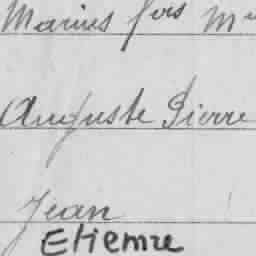 Marius fois
Auguste Pierre
Jean
Etienne